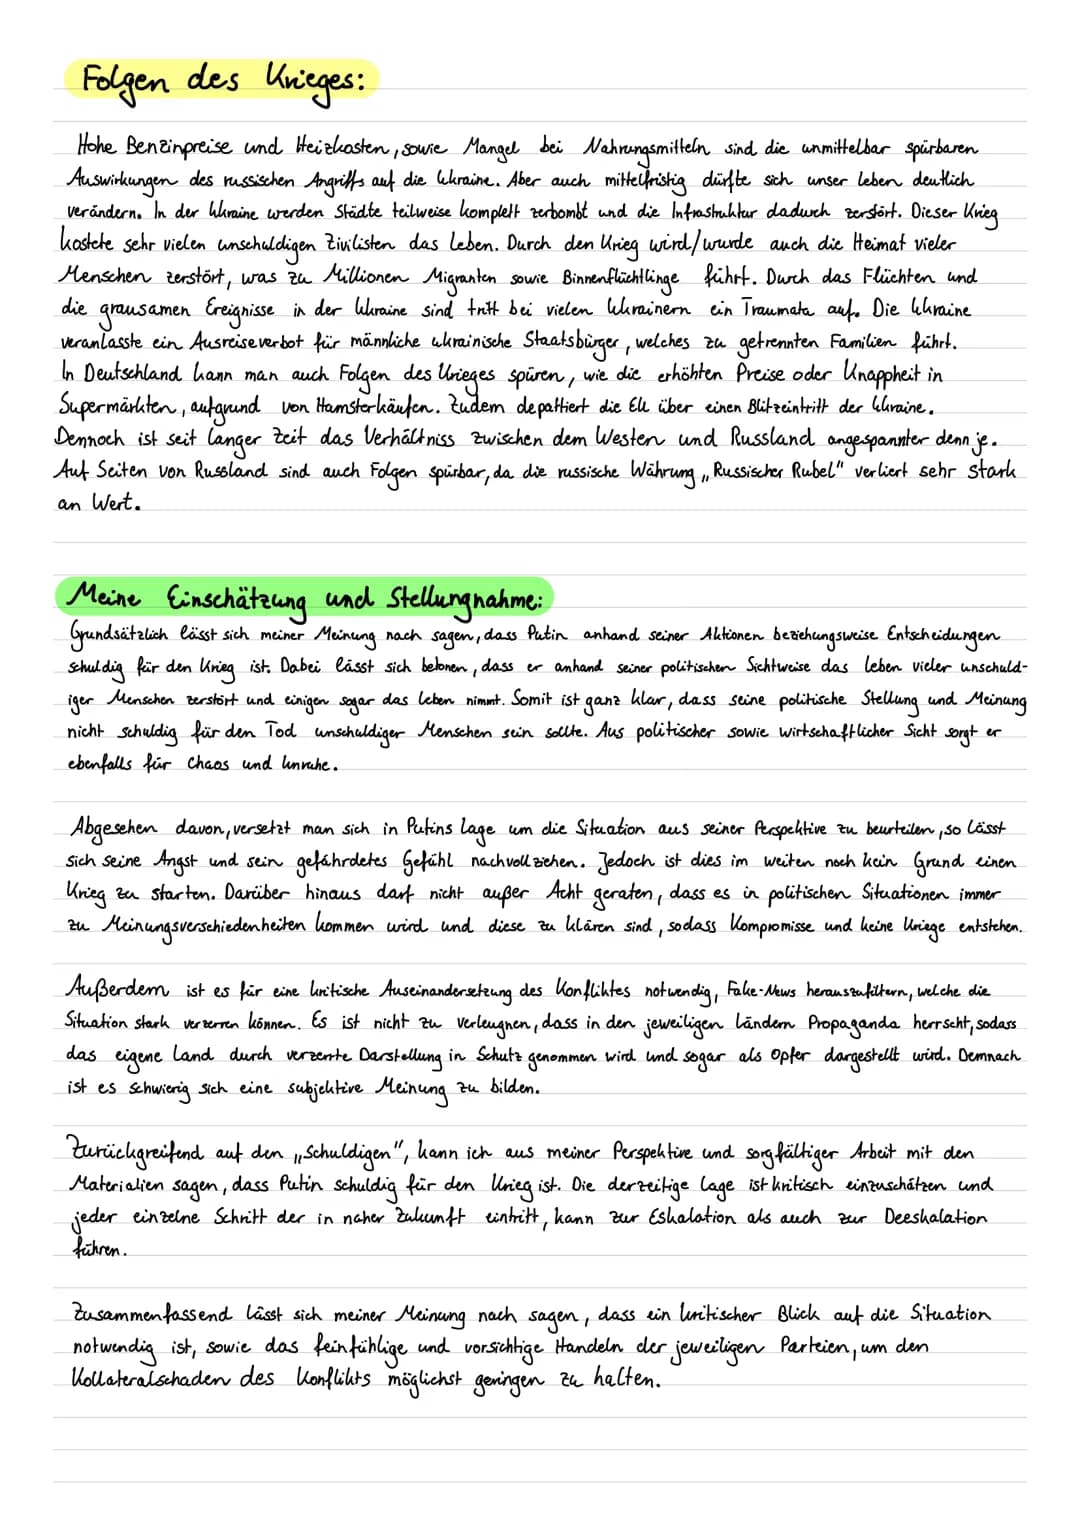 Folgen des Krieges:
Hohe Benzinpreise und Heizkosten, sowie Mangel bei Nahrungsmitteln sind die unmittelbar spürbaren
Auswirkungen des russischen Angriffs auf die Ukraine. Aber auch mittelfristig dürfte sich unser Leben deutlich
verändern. In der Ukraine werden Städte teilweise komplett zerbombt und die Infrastruktur dadurch zerstört. Dieser Krieg
kostete sehr vielen unschuldigen Zivilisten das Leben. Durch den Krieg wird/wurde auch die Heimat vieler
Menschen zerstört, was zu Millionen Migranten sowie Binnenflüchtlinge führt. Durch das Flüchten und
die grausamen Ereignisse in der Ukraine sind tritt bei vielen Ukrainern ein Traumata auf. Die Ukraine
veranlasste ein Ausreiseverbot für männliche ukrainische Staatsbürger, welches zu getrennten Familien führt.
In Deutschland kann man auch Folgen des Krieges spüren, wie die erhöhten Preise oder Knappheit in
Supermärkten, aufgrund von Hamsterkäufen. Zudem depattiert die EU über einen Blitzeintritt der Ukraine.
Dennoch ist seit langer Zeit das Verhältniss zwischen dem Westen und Russland angespannter denn je.
Auf Seiten von Russland sind auch Folgen spürbar, da die russische Währung „Russischer Rubel" verliert sehr stark
an Wert.
Meine Einschätzung und Stellungnahme:
Grundsätzlich lässt sich meiner Meinung nach sagen, dass Putin anhand seiner Aktionen beziehungsweise Entscheidungen
schuldig für den Krieg ist. Dabei lässt sich betonen, dass er anhand seiner politischen Sichtweise das Leben vieler unschuld-
iger Menschen zerstört und einigen sogar das Leben nimmt. Somit ist ganz klar, dass seine politische Stellung und Meinung
nicht schuldig für den Tod unschuldiger Menschen sein sollte. Aus politischer sowie wirtschaftlicher Sicht sorgt er
ebenfalls für Chaos und Unruhe.
Abgesehen davon, versetzt man sich in Putins Lage um die Situation aus seiner Perspektive zu beurteilen, so lässt
sich seine Angst und sein gefährdetes Gefühl nachvollziehen. Jedoch ist dies im weiten noch kein Grund einen
Krieg zu starten. Darüber hinaus darf nicht außer Acht geraten, dass es in politischen Situationen immer
zu Meinungsverschiedenheiten kommen wird und diese zu klären sind, sodass Kompromisse und keine Kriege entstehen.
Außerdem ist es für eine kritische Auseinandersetzung des Konfliktes notwendig, Fake-News herauszufiltern, welche die
Situation stark verzerren können. Es ist nicht zu verleugnen, dass in den jeweiligen Ländern Propaganda herrscht, sodass
das eigene Land durch verzerrte Darstellung in Schutz genommen wird und sogar als Opfer dargestellt wird. Demnach
ist es schwierig sich eine subjektive Meinung zu bilden.
Zurückgreifend auf den „Schuldigen", kann ich aus meiner Perspektive und sorgfältiger Arbeit mit den
Materialien sagen, dass Putin schuldig für den Krieg ist. Die derzeitige Lage ist kritisch einzuschätzen und
jeder einzelne Schritt der in naher Zukunft eintritt, kann zur Eskalation als auch zur Deeskalation
führen.
Zusammenfassend lässt sich meiner Meinung nach sagen, dass ein kritischer Blick auf die Situation
notwendig ist, sowie das feinfühlige und vorsichtige Handeln der jeweiligen Parteien, um den
Kollateralschaden des Konflikts möglichst geringen zu halten.